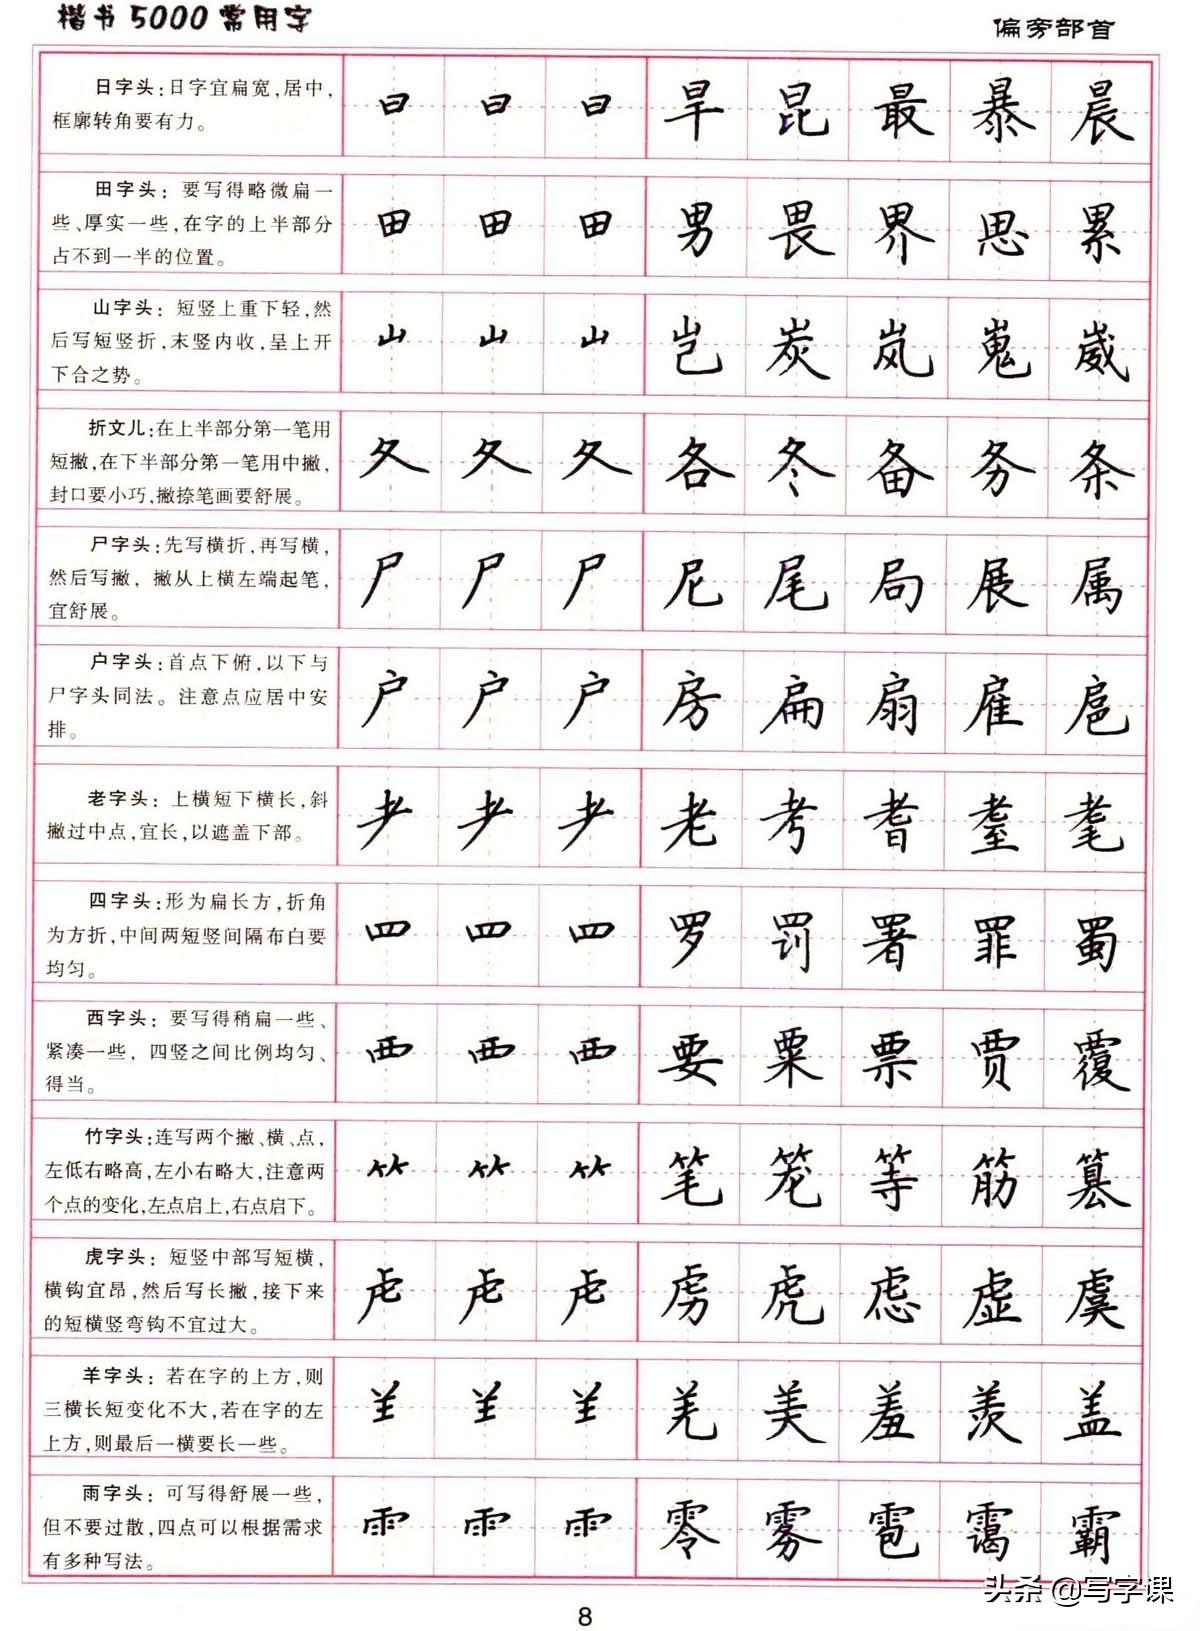 楷书5000常用字
偏旁部首
日字头:日字宜扁宽,居中,
框廓转角要有力。
日 日 日 旱 昆 最 暴 晨
田字头: 要写得略微扁一
些、厚实一些,在字的上半部分
占不到一半的位置。
田 田 田 男 畏 界 思 累
山字头: 短竖上重下轻,然
后写短竖折,末竖内收,呈上开
下合之势。
山 山 山 岂 炭 岚 嵬 崴
折文儿:在上半部分第一笔用
短撇,在下半部分第一笔用中撇,
封口要小巧,撇捺笔画要舒展。
夂 夂 夂 各 冬 备 务 条
尸字头:先写横折,再写横,
然后写撇, 撇从上横左端起笔,
宜舒展。
尸 尸 尸 尼 尾 局 展 属
户字头:首点下俯,以下与
尸字头同法。注意点应居中安
排。
户 户 户 房 扁 扇 雇 扈
老字头: 上横短下横长,斜
撇过中点,宜长,以遮盖下部。
耂 耂 耂 老 考 耆 耋 耄
四字头:形为扁长方,折角
为方折,中间两短竖间隔布白要
均匀。
罒 罒 罒 罗 罚 署 罪 蜀
西字头: 要写得稍扁一些、
紧凑一些, 四竖之间比例均匀、
得当。
覀 覀 覀 要 粟 票 贾 覆
竹字头:连写两个撇、横、点,
左低右略高,左小右略大,注意两
个点的变化,左点启上,右点启下。
⺮ ⺮ ⺮ 笔 笼 等 筋 篡
虎字头: 短竖中部写短横,
横钩宜昂,然后写长撇,接下来
的短横竖弯钩不宜过大。
虍 虍 虍 虏 虎 虑 虚 虞
羊字头: 若在字的上方,则
三横长短变化不大,若在字的左
上方,则最后一横要长一些。
⺷ ⺷ ⺷ 羌 美 羞 羡 盖
雨字头: 可写得舒展一些,
但不要过散,四点可以根据需求
有多种写法。
⻗ ⻗ ⻗ 零 雾 雹 霭 霸
头条 @写字课
8